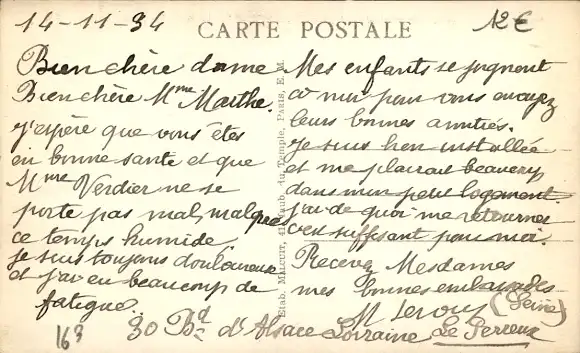 14-11-34
CARTE POSTALE
12€
Bien chère dame
Bien chère Mme Marthe.
J'espère que vous êtes
en bonne santé et que
Mme Verdier ne se
porte pas mal, malgré
ce temps humide.
Je suis toujours douloureuse
et j'ai eu beaucoup de
fatigue.
Etab. MALCUIT, 41, Faub. du Temple, PARIS, E. M.
Mes enfants se joignent
à moi pour vous envoyer
leurs bonnes amitiés.
Je suis bien installée
et me plairait beaucoup
dans mon petit logement.
j'ai de quoi me retourner
c'est suffisant pour moi.
Recevez Mesdames
mes bonnes embrassades
M Leroux
(Seine)
163
30 Bd d'Alsace Lorraine Le Perreux